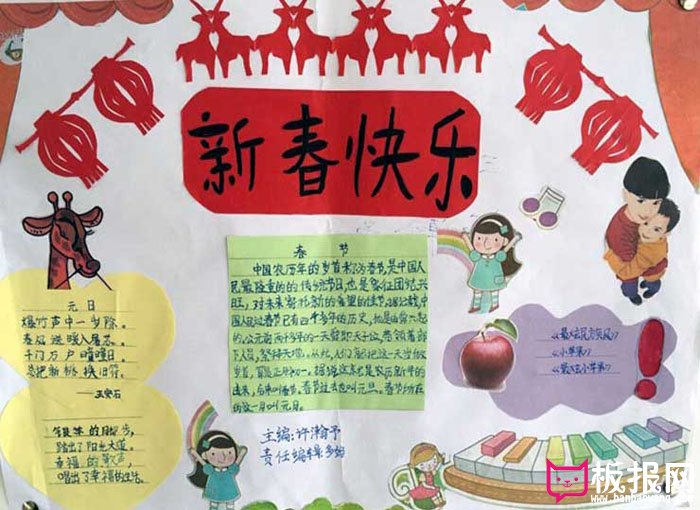 新春快乐
元日
爆竹声中一岁除,
春风送暖入屠苏。
千门万户曈曈日,
总把新桃换旧符。
——王安石
踏出了阳光大道。
幸福的歌声,
唱出了幸福的生活。
春节
中国农历年的岁首称为春节,是中国人
民最隆重的的传统节日,也是象征团结兴
旺,对未来寄托新的希望的佳节。据记载,中国
人民过春节已有四千多年的历史,它是由舜兴起
的。公元前两千多年的一天,舜即天子位,带领着部
下人员,祭拜天地。从此,人们就把这一天当做
岁首,算是正月初一。据说这就是农历新年的
由来,后来叫春节。春节过去也叫元旦。春节所在
的这一月叫元月。
主编:许瀚予
责任编辑:
《小苹果》
板报网
www.banbaowang.com